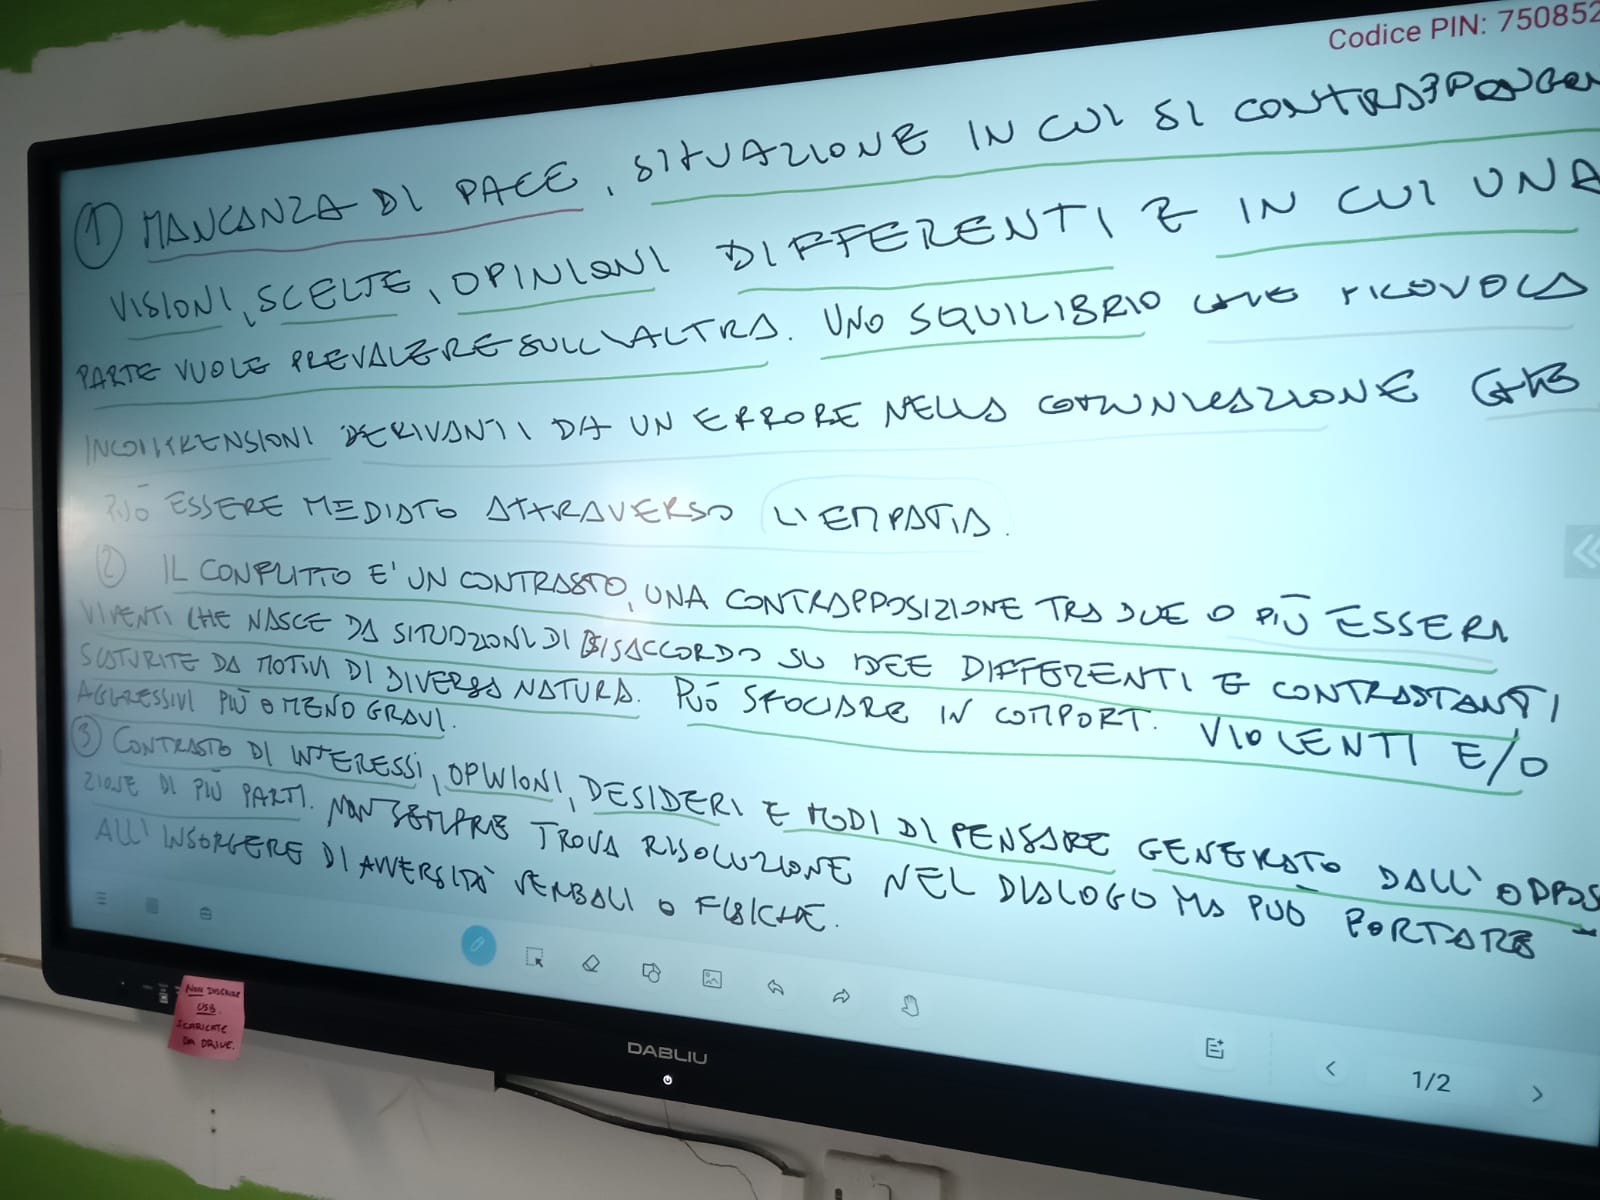 Codice PIN: 750852
① MANCANZA DI PACE, SITUAZIONE IN CUI SI CONTRAPPONGON
VISIONI, SCELTE, OPINIONI DIFFERENTI E IN CUI UNA
PARTE VUOLE PREVALERE SULL'ALTRA. UNO SQUILIBRIO CHE
INCOMPRENSIONI DERIVANTI DA UN ERRORE NELLA COMUNICAZIONE CHE
PUÒ ESSERE MEDIATO ATTRAVERSO L'EMPATIA.
② IL CONFLITTO E' UN CONTRASTO, UNA CONTRAPPOSIZIONE TRA DUE O PIÙ ESSERI
VIVENTI CHE NASCE DA SITUAZIONI DI DISACCORDO SU IDEE DIFFERENTI E CONTRASTANTI
SCATURITE DA MOTIVI DI DIVERSA NATURA. PUÒ SFOCIARE IN COMPORT. VIOLENTI E/O
AGGRESSIVI PIÙ O MENO GRAVI.
③ CONTRASTO DI INTERESSI, OPINIONI, DESIDERI E MODI DI PENSARE GENERATO DALL'OPPOS
ZIONE DI PIÙ PARTI. NON SEMPRE TROVA RISOLUZIONE NEL DIALOGO MA PUÒ PORTARE
ALL'INSORGERE DI AVVERSITÀ VERBALI O FISICHE.
1/2
DABLIU
NON
USB.
SCARICATE
DA DRIVE.